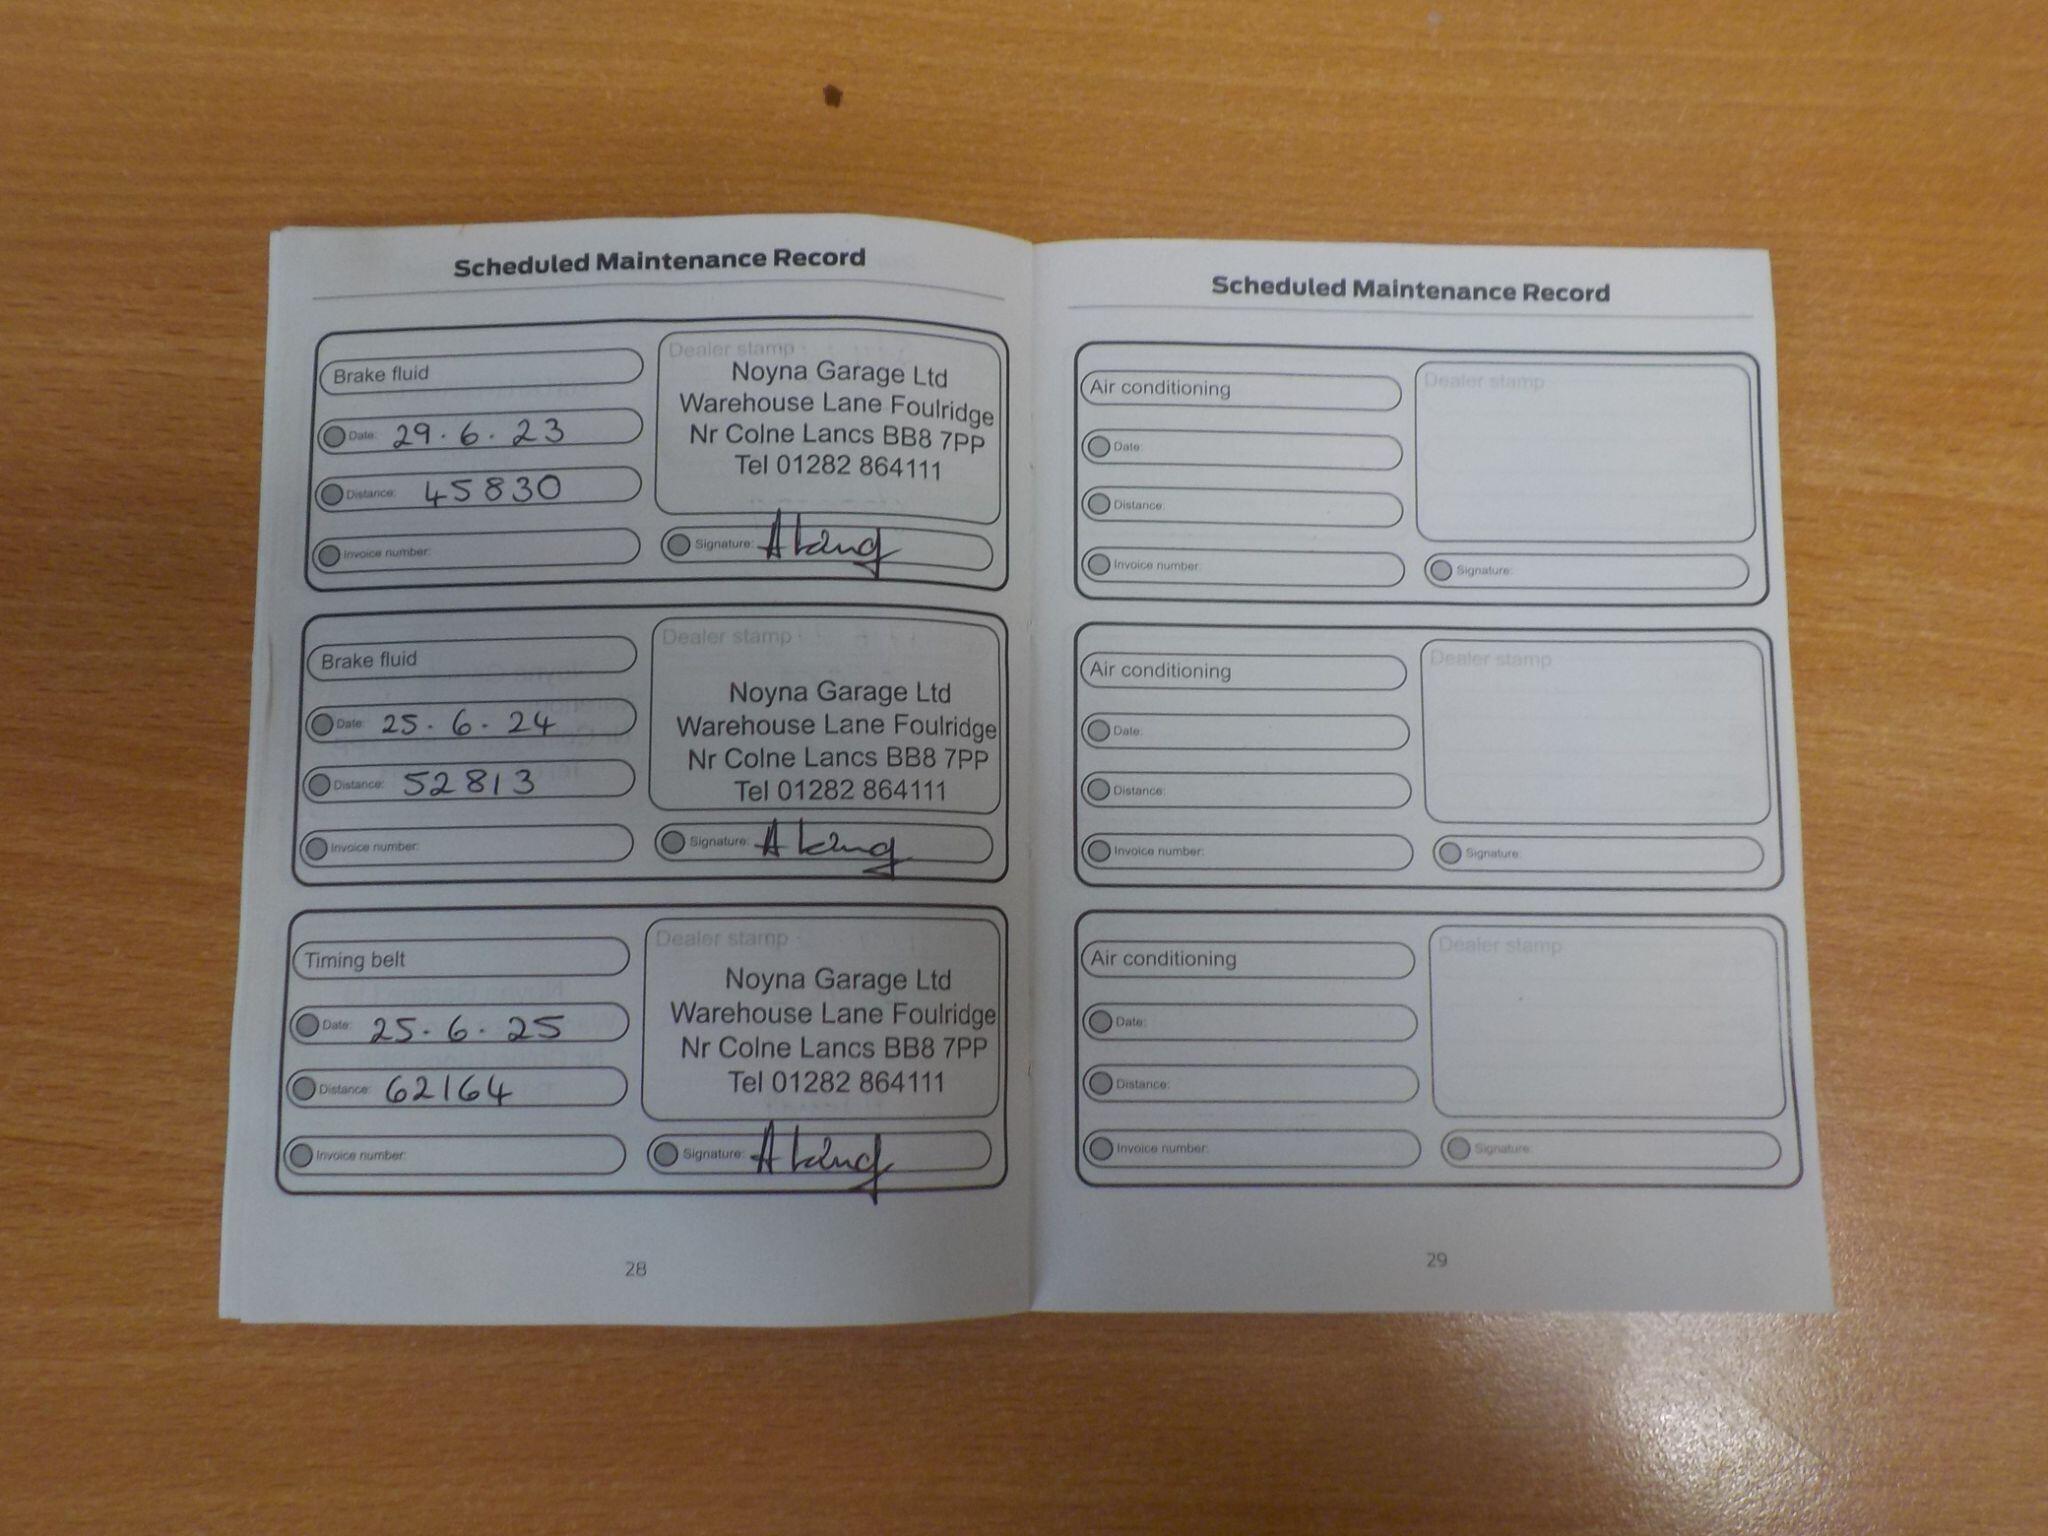 Scheduled Maintenance Record
Brake fluid
Date: 29.6.23
Distance: 45830
Invoice number:
Dealer stamp
Noyna Garage Ltd
Warehouse Lane Foulridge
Nr Colne Lancs BB8 7PP
Tel 01282 864111
Signature: A King
Brake fluid
Date: 25.6.24
Distance: 52813
Invoice number:
Dealer stamp
Noyna Garage Ltd
Warehouse Lane Foulridge
Nr Colne Lancs BB8 7PP
Tel 01282 864111
Signature: A King
Timing belt
Date: 25.6.25
Distance: 62164
Invoice number:
Dealer stamp
Noyna Garage Ltd
Warehouse Lane Foulridge
Nr Colne Lancs BB8 7PP
Tel 01282 864111
Signature: A King
28
Scheduled Maintenance Record
Air conditioning
Date:
Distance:
Invoice number:
Dealer stamp
Signature:
Air conditioning
Date:
Distance:
Invoice number:
Dealer stamp
Signature:
Air conditioning
Date:
Distance:
Invoice number:
Dealer stamp
Signature:
29